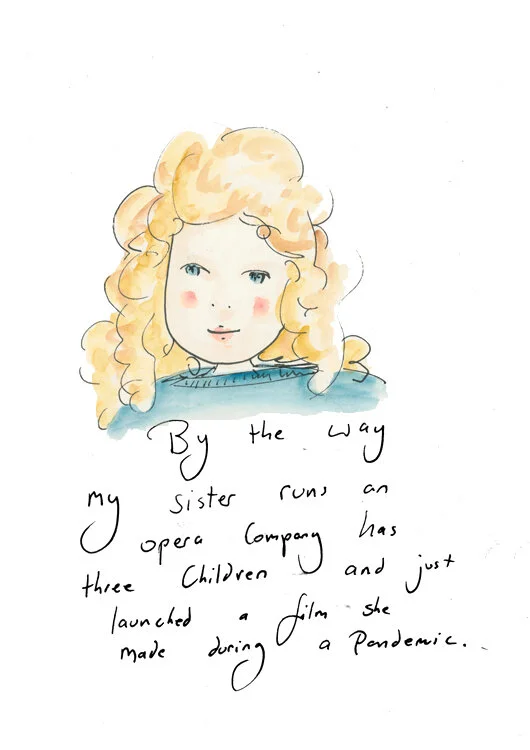 By the way
my sister runs an
opera Company has
three Children and just
launched a film she
made during a Pandemic.